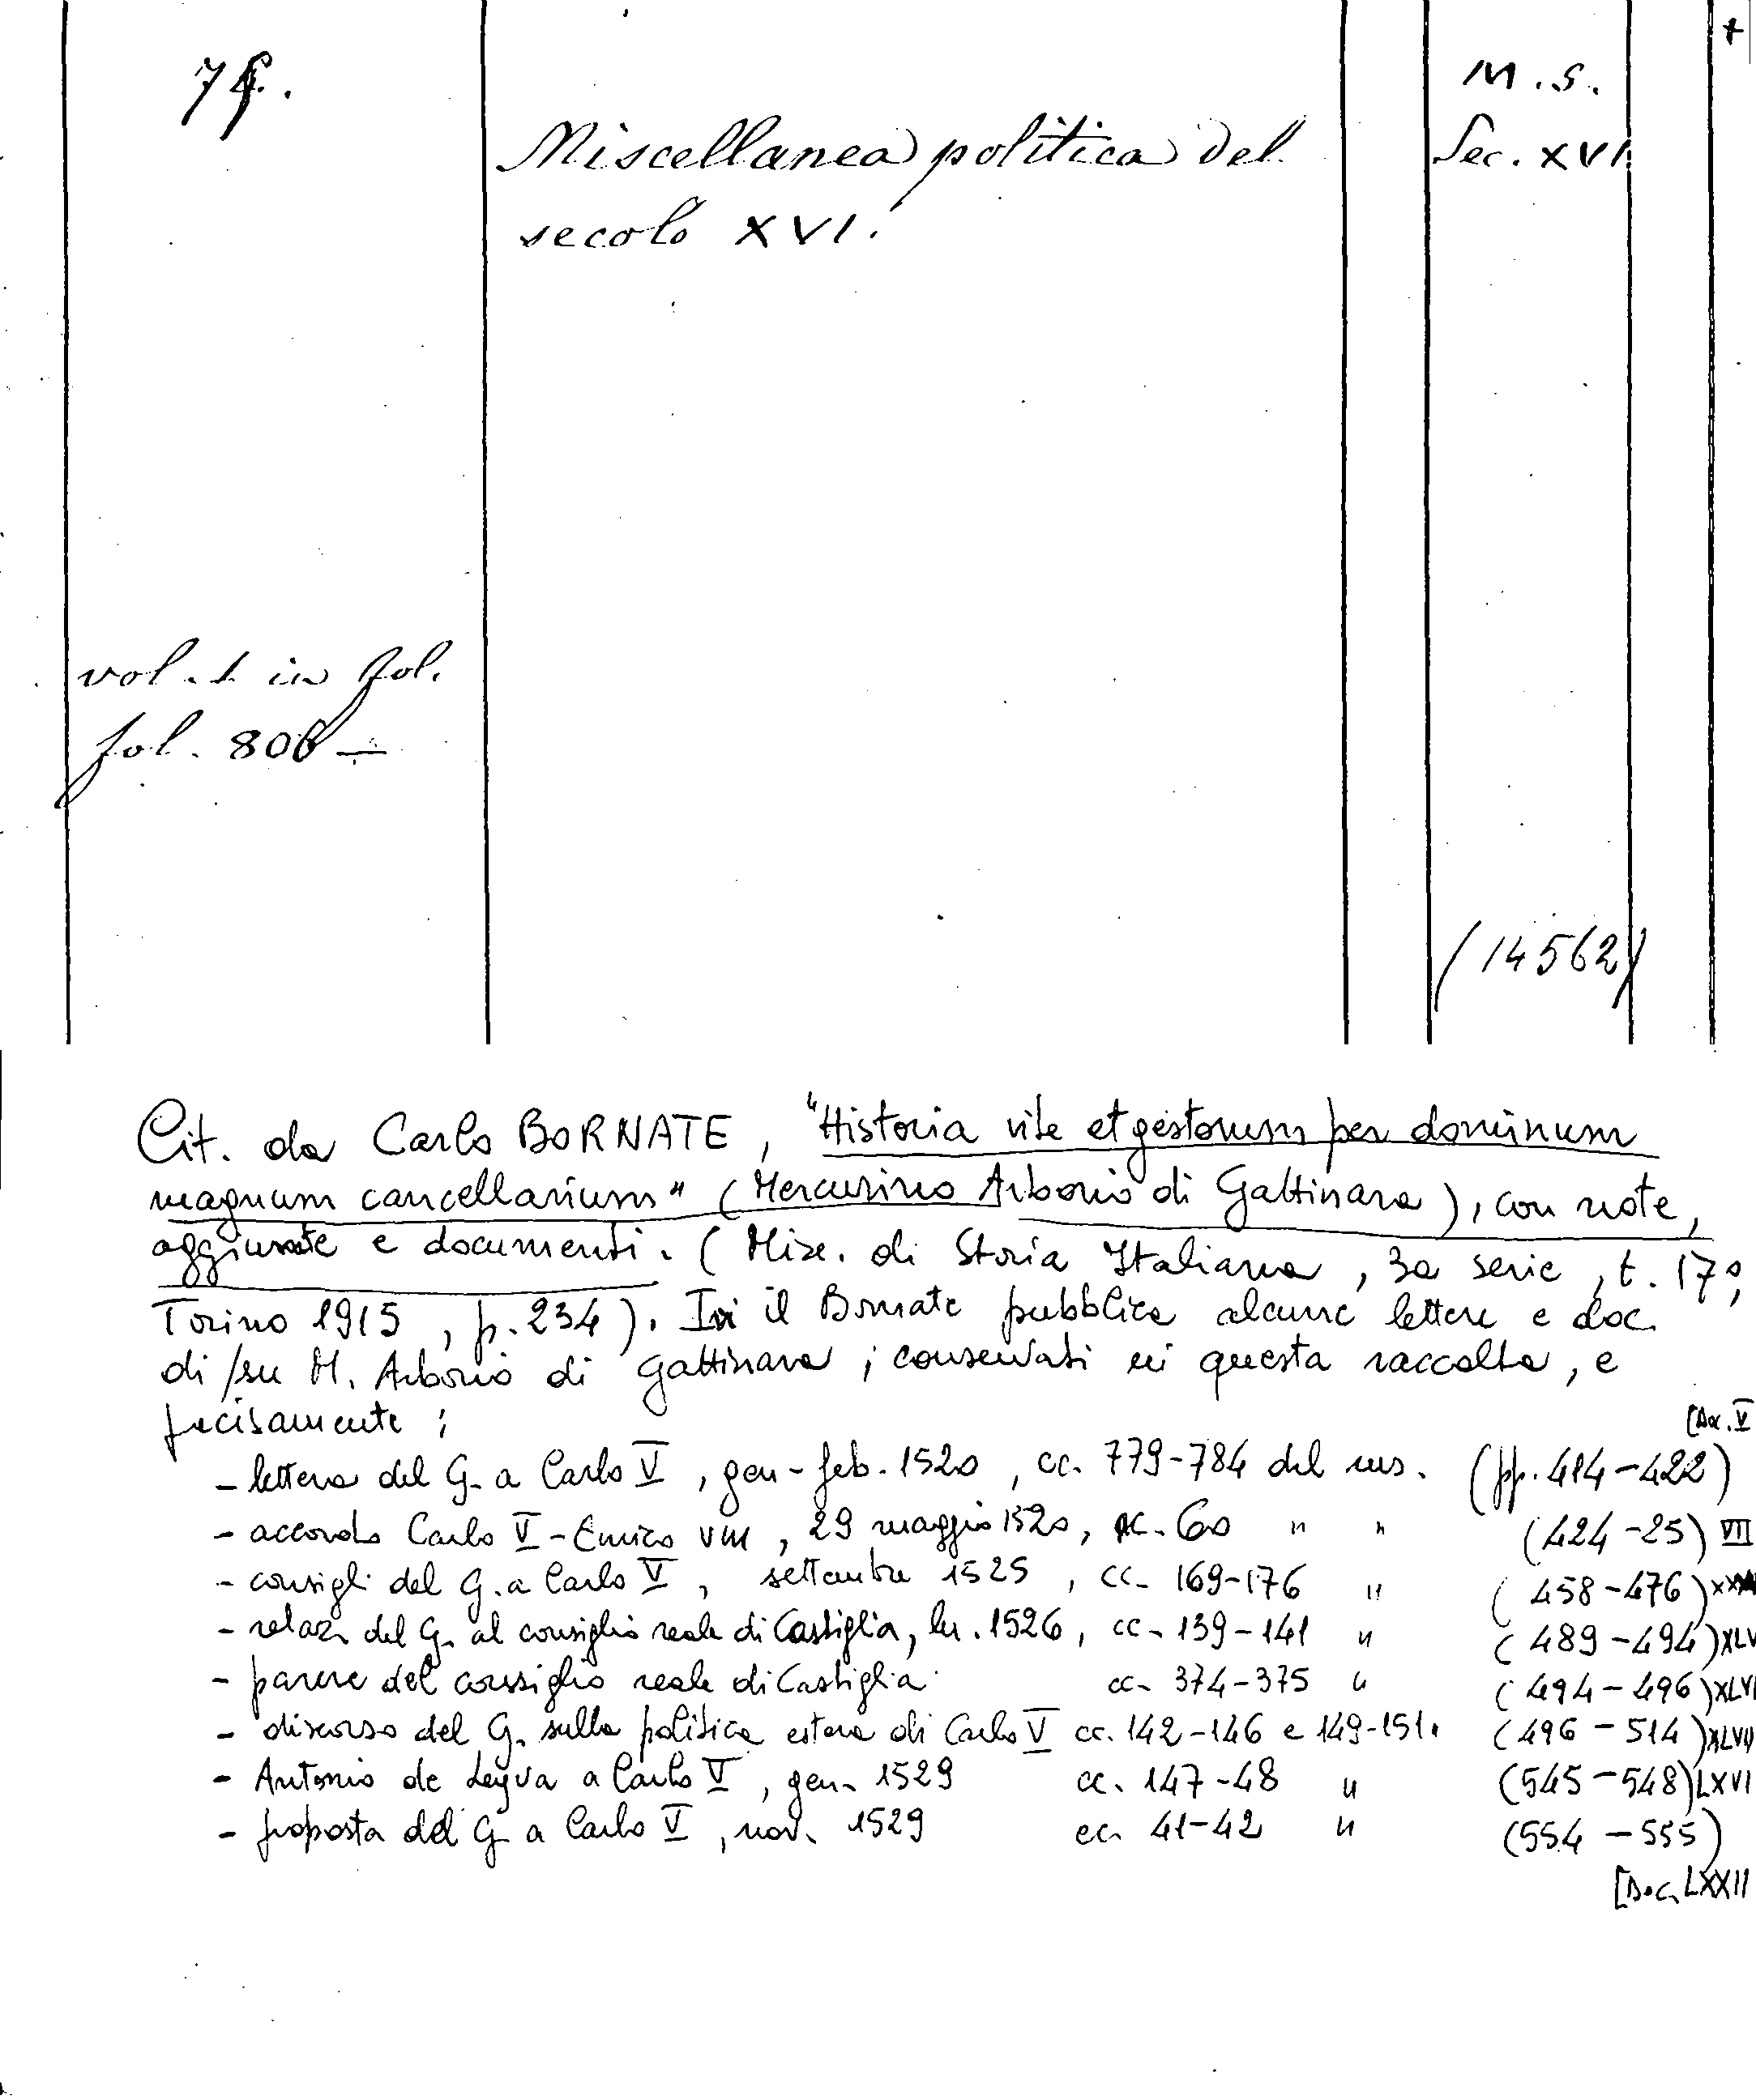 +
75.
M.S.
Miscellanea politica del
Sec. XVI.
secolo XVI.
vol. 1 in fol.
fol. 806
(14562)
Cit. da Carlo BORNATE, "Historia vite et gestorum per dominum
magnum cancellarium" (Mercurino Arborio di Gattinara), con note,
aggiunte e documenti. (Misc. di Storia Italiana, 3a serie, t. 17°,
Torino 1915, p. 234). Ivi il Bornate pubblica alcune lettere e doc.
di/su M. Arborio di Gattinara, conservati in questa raccolta, e
precisamente:
[Doc. V
- lettera del G. a Carlo V, gen-feb. 1520, cc. 779-784 del ms. (pp. 414-422)
- accordo Carlo V - Enrico VIII, 29 maggio 1520, c. 60 " " (424-25) VII
- consigli del G. a Carlo V, settembre 1525, cc. 169-176 " (458-476)
- relaz. del G. al consiglio reale di Castiglia, 1526, cc. 139-141 " (489-494) XLV
- parere del consiglio reale di Castiglia cc. 374-375 " (494-496) XLVI
- discorso del G. sulla politica estera di Carlo V cc. 142-146 e 149-151. (496-514) XLVII
- Antonio de Leyva a Carlo V, gen. 1529 cc. 147-48 " (545-548) LXVI
- proposta del G. a Carlo V, nov. 1529 cc. 41-42 " (554-555)
[Doc. LXXII